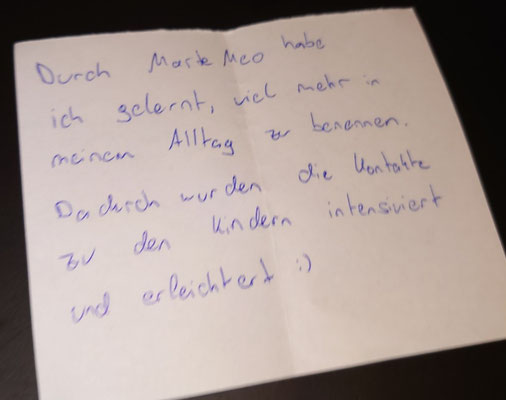 Durch Marte Meo habe
ich gelernt, viel mehr in
meinem Alltag zu benennen.
Dadurch wurden die Kontakte
zu den Kindern intensiviert
und erleichtert :)